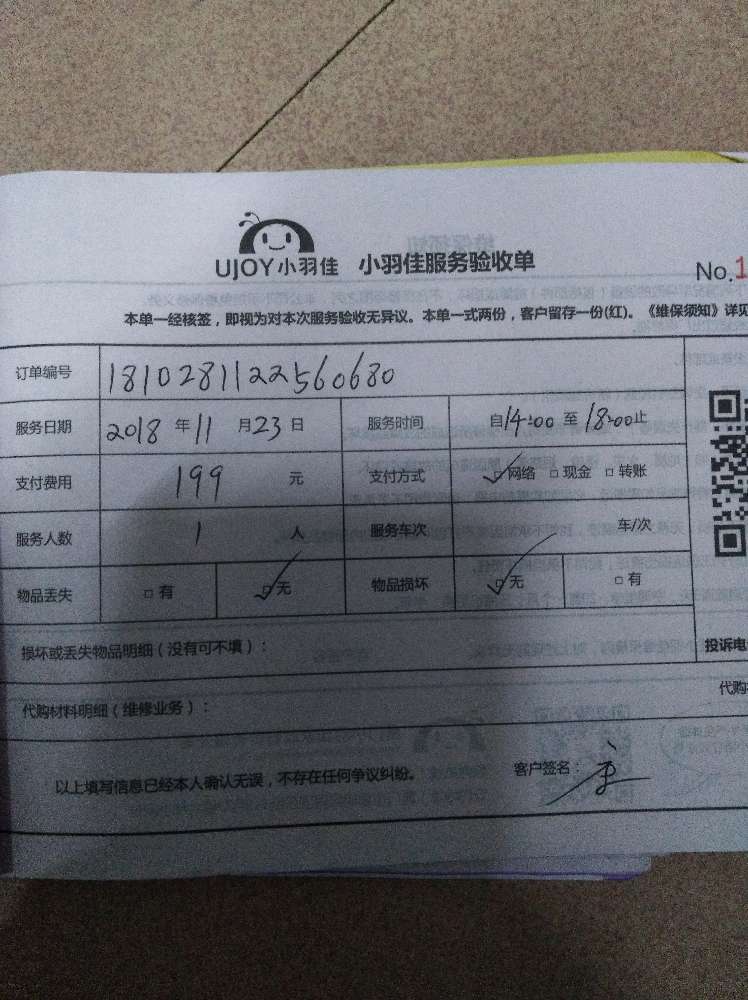 UJOY小羽佳 小羽佳服务验收单
No.1
本单一经核签，即视为对本次服务验收无异议。本单一式两份，客户留存一份(红)。《维保须知》详见
订单编号 1810281122560680
服务日期 2018 年 11 月 23 日 服务时间 自 14:00 至 18:00 止
支付费用 199 元 支付方式 ☑网络 □现金 □转账
服务人数 1 人 服务车次 车/次
物品丢失 □有 ☑无 物品损坏 ☑无 □有
损坏或丢失物品明细（没有可不填）：
投诉电
代购材料明细（维修业务）：
代购
以上填写信息已经本人确认无误，不存在任何争议纠纷。 客户签名：